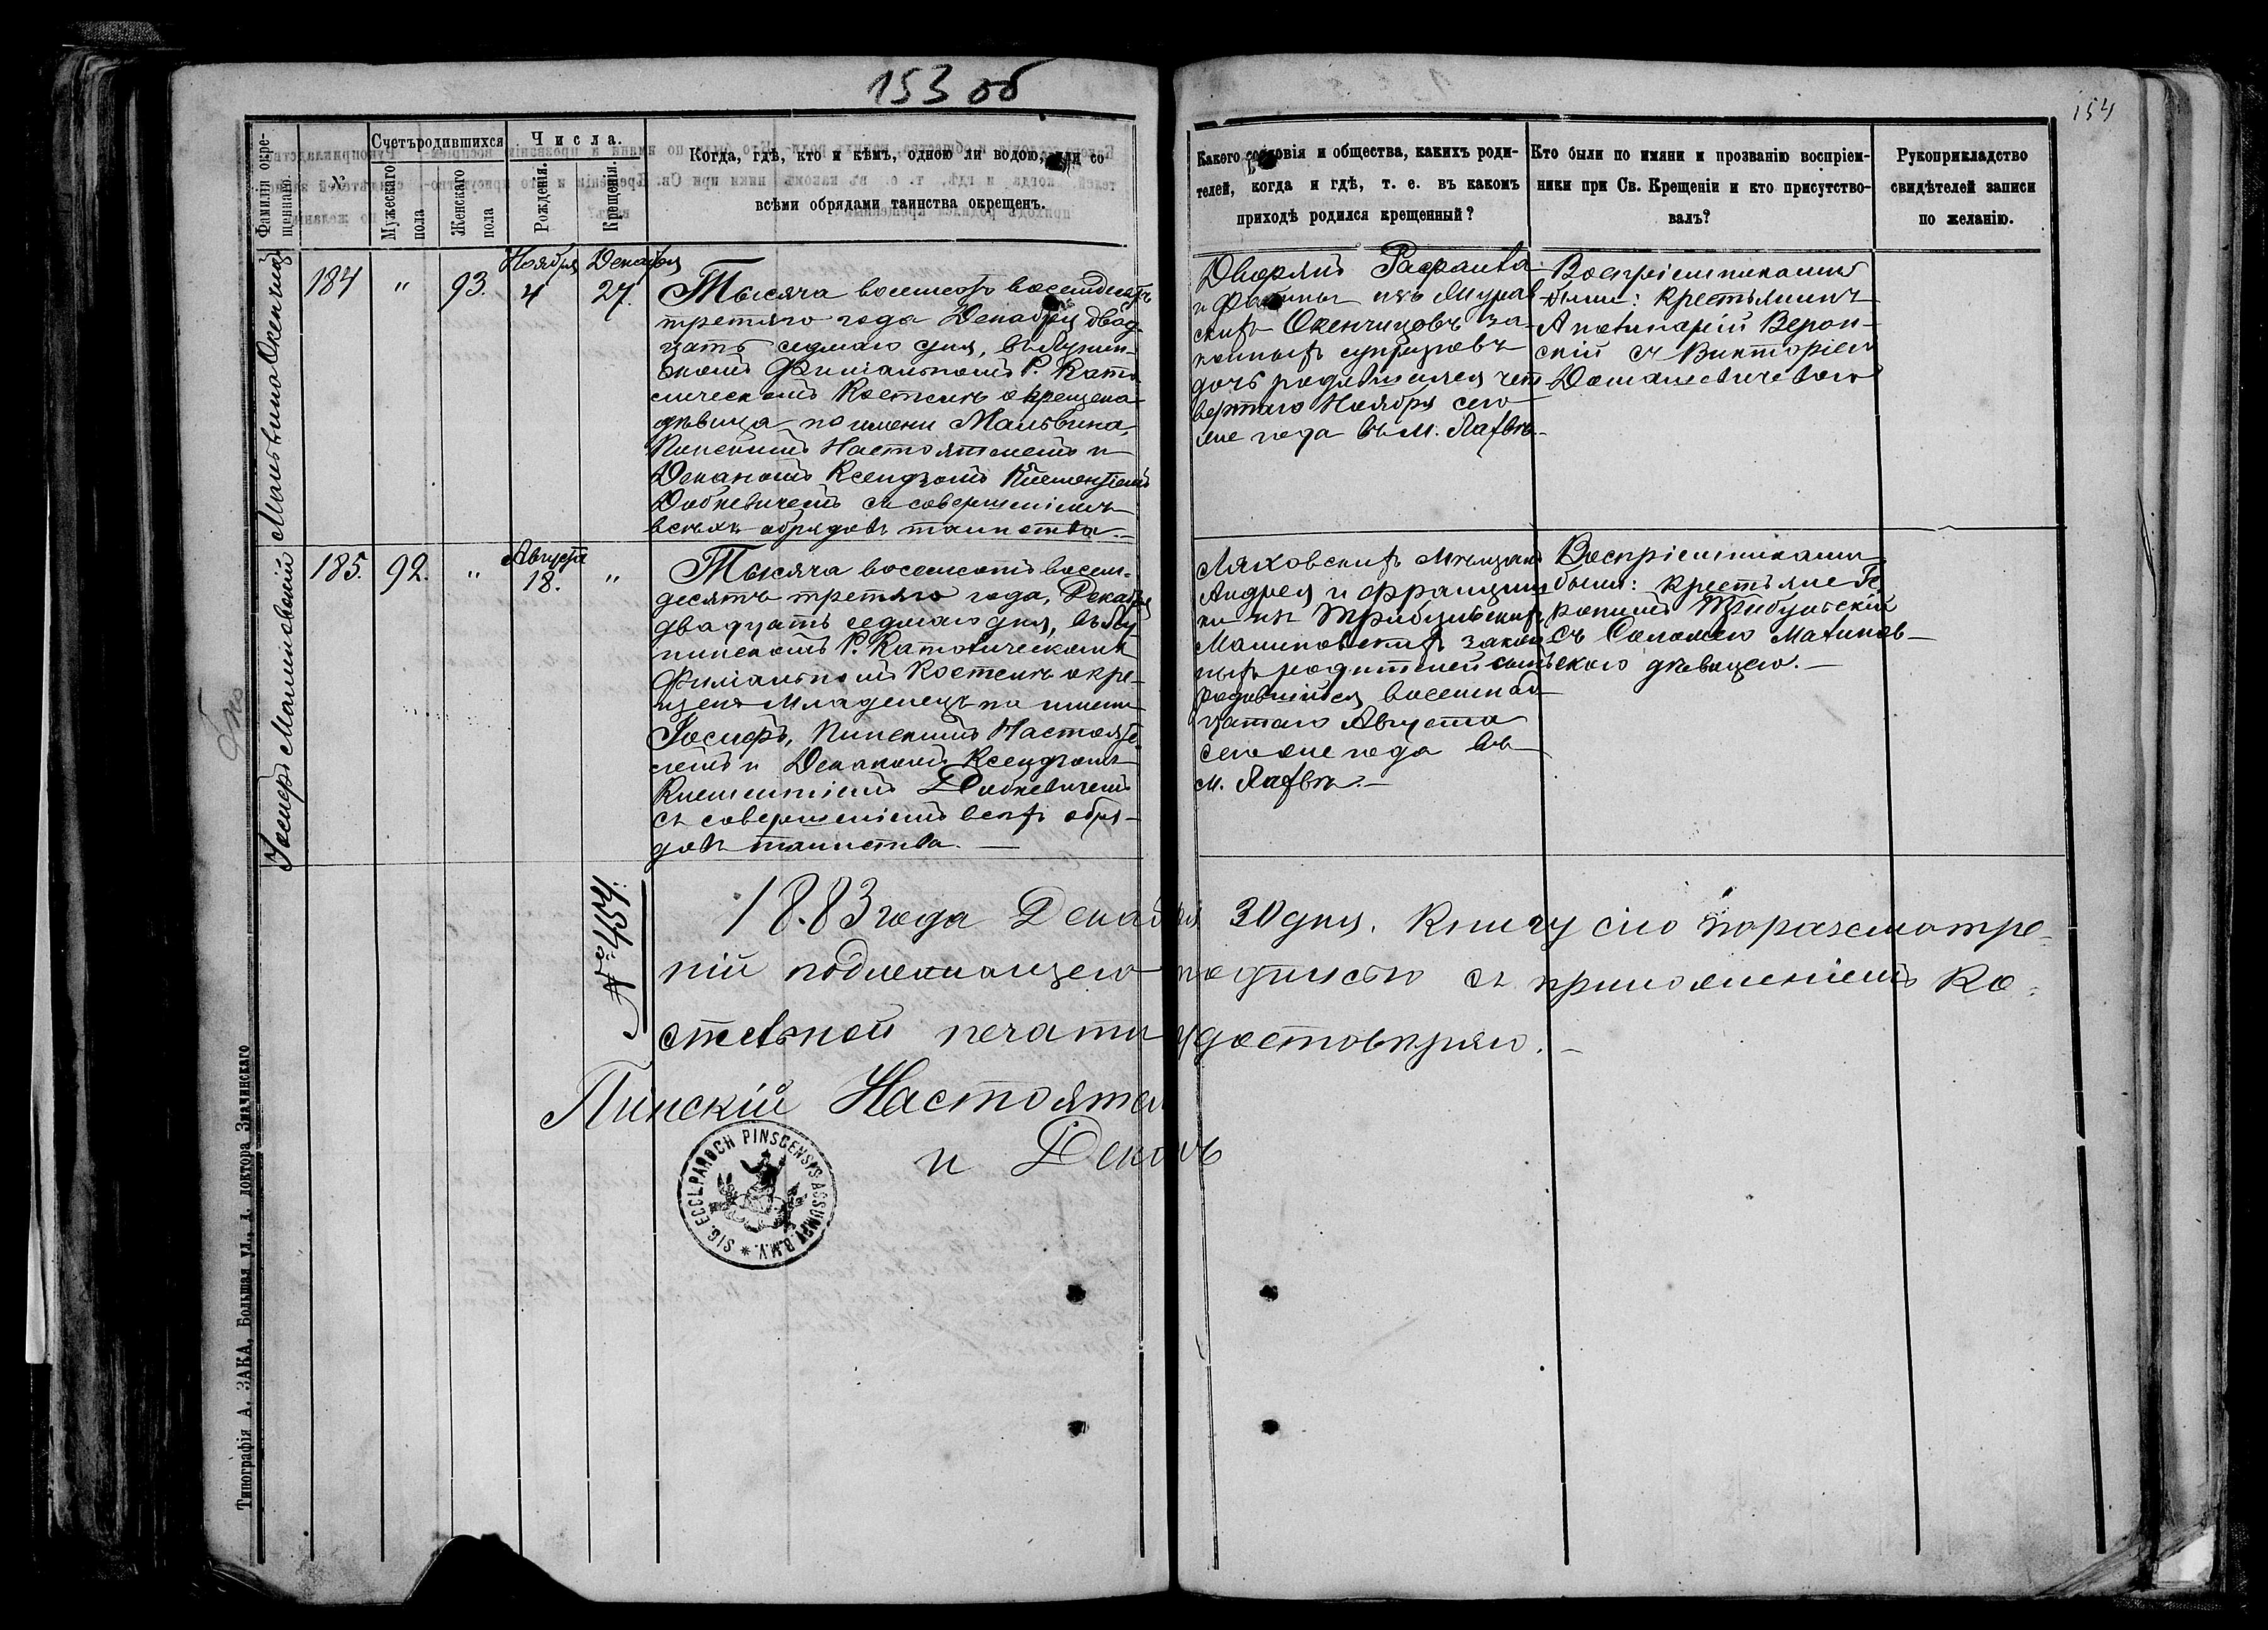 153 об
154
Фамиліи окре-
щеннаго.
№
Счетъ родившихся
Мужескаго
пола
Женскаго
пола
Числа.
Рожденія.
Крещенія.
Когда, гдѣ, кто и кѣмъ, одною ли водою, или со
всѣми обрядами таинства окрещенъ.
Какого сословія и общества, какихъ роди-
телей, когда и гдѣ, т. е. въ какомъ
приходѣ родился крещенный?
Кто были по имяни и прозванію воспріем-
ники при Св. Крещеніи и кто присутство-
валъ?
Рукоприкладство
свидѣтелей записи
по желанію.
Мальвина Окенчицъ
184
"
93.
Ноября
4
Декабря
27.
Тысяча восемсотъ восемдесятъ
третяго года Декабря двад-
цать седмаго дня, въ Лунин-
скомъ Филіальномъ Р. Като-
лическомъ Костелѣ окрещена
дѣвица по имени Мальвина,
Пинскимъ Настоятелемъ и
Деканомъ Ксендзомъ Климентіемъ
съ совершеніемъ
всѣхъ обрядовъ таинства.
Дворянъ Рафаила
и изъ Мурав
скихъ Окенчицовъ за-
конныхъ супруговъ
дочь родившаяся чет
вертаго Ноября сего
же года въ м. Лахвѣ.
Воспріемниками
были: Крестьянинъ
Аполинарій Верон-
скій съ Викторіею
Домашевичевою
Іосифъ Малиновскій
185.
92.
"
Августа
18.
"
Тысяча восемсотъ восем-
десятъ третяго года, Декабря
двадцать седмаго дня, въ Лу
нинскомъ Р. Католическомъ
Филіальномъ Костелѣ окре-
щенъ младенецъ по имени
Іосифъ, Пинскимъ Настояте-
лемъ и Деканомъ Ксендзомъ
Климентіемъ
съ совершеніемъ всѣхъ обря-
довъ таинства.
Ляховскихъ Мѣщанъ
Андрея и Францишки
изъ
Малиновскихъ закон
ныхъ родителей сынъ
родившійся восемнад
цатаго Августа
сего же года въ
м. Лахвѣ.
Воспріемниками
были: Крестьяне Ге
ронимъ
съ Саломею Малинов-
скою дѣвицею.
1883 года Декабря 30 дня. Книгу сію по разсмотре-
ній подлежащею подписью съ приложеніемъ Ко-
стельной печати удостовѣряю.
Пинскій Настоятель
и Деканъ
SIG. ECCL. PAROCH PINSCENSIS ASSUMPT. B.M.V. *
Типографія А. ЗАКА, Большая ул., д. доктора Значинскаго